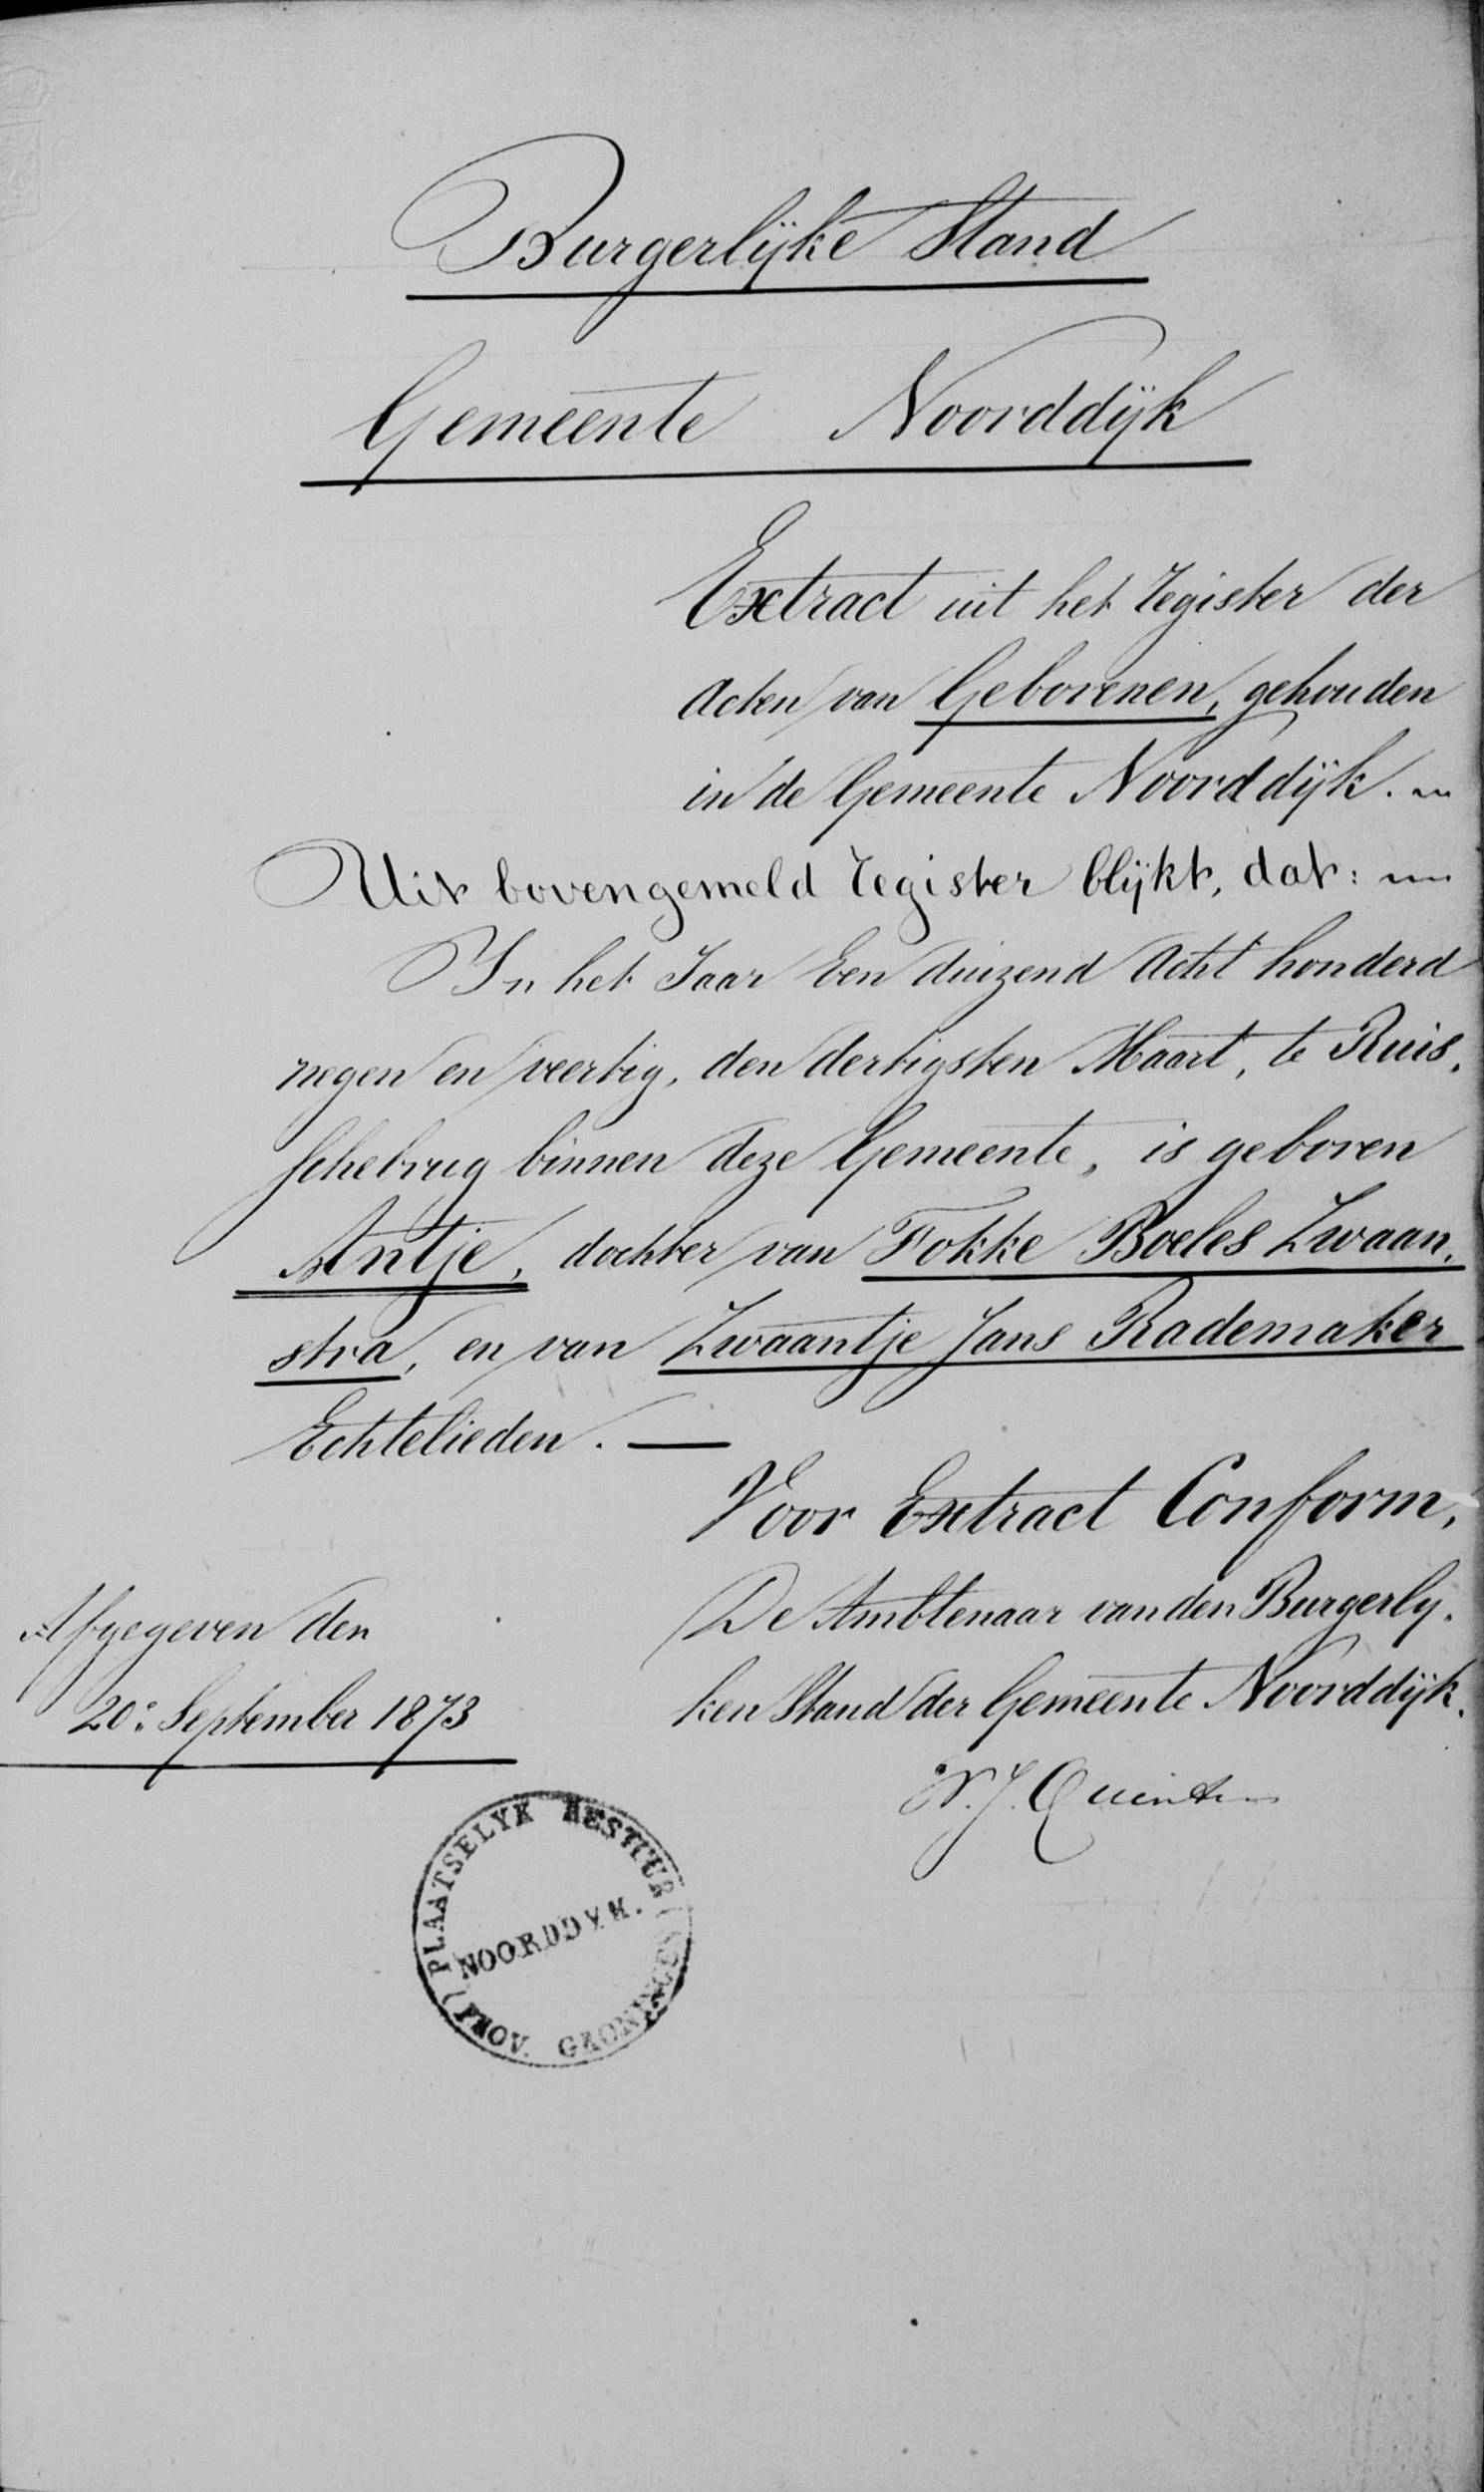 Burgerlijke Stand
Gemeente Noorddijk
Extract uit het register der
Acten van Geborenen, gehouden
in de Gemeente Noorddijk.
Uit bovengemeld register blijkt, dat:
In het Jaar Een duizend Acht honderd
negen en veertig, den dertigsten Maart, te Ruis,
schebrug binnen deze Gemeente, is geboren
Antje, dochter van Fokke Boeles Zwaan,
stra, en van Zwaantje Jans Rademaker
Echtelieden. —
Voor Extract Conform,
De Ambtenaar van den Burgerly,
ken Stand der Gemeente Noorddijk.
Afgegeven den
20e September 1873
PLAATSELYK BESTUUR
NOORDDYK.
PROV. GRONINGEN